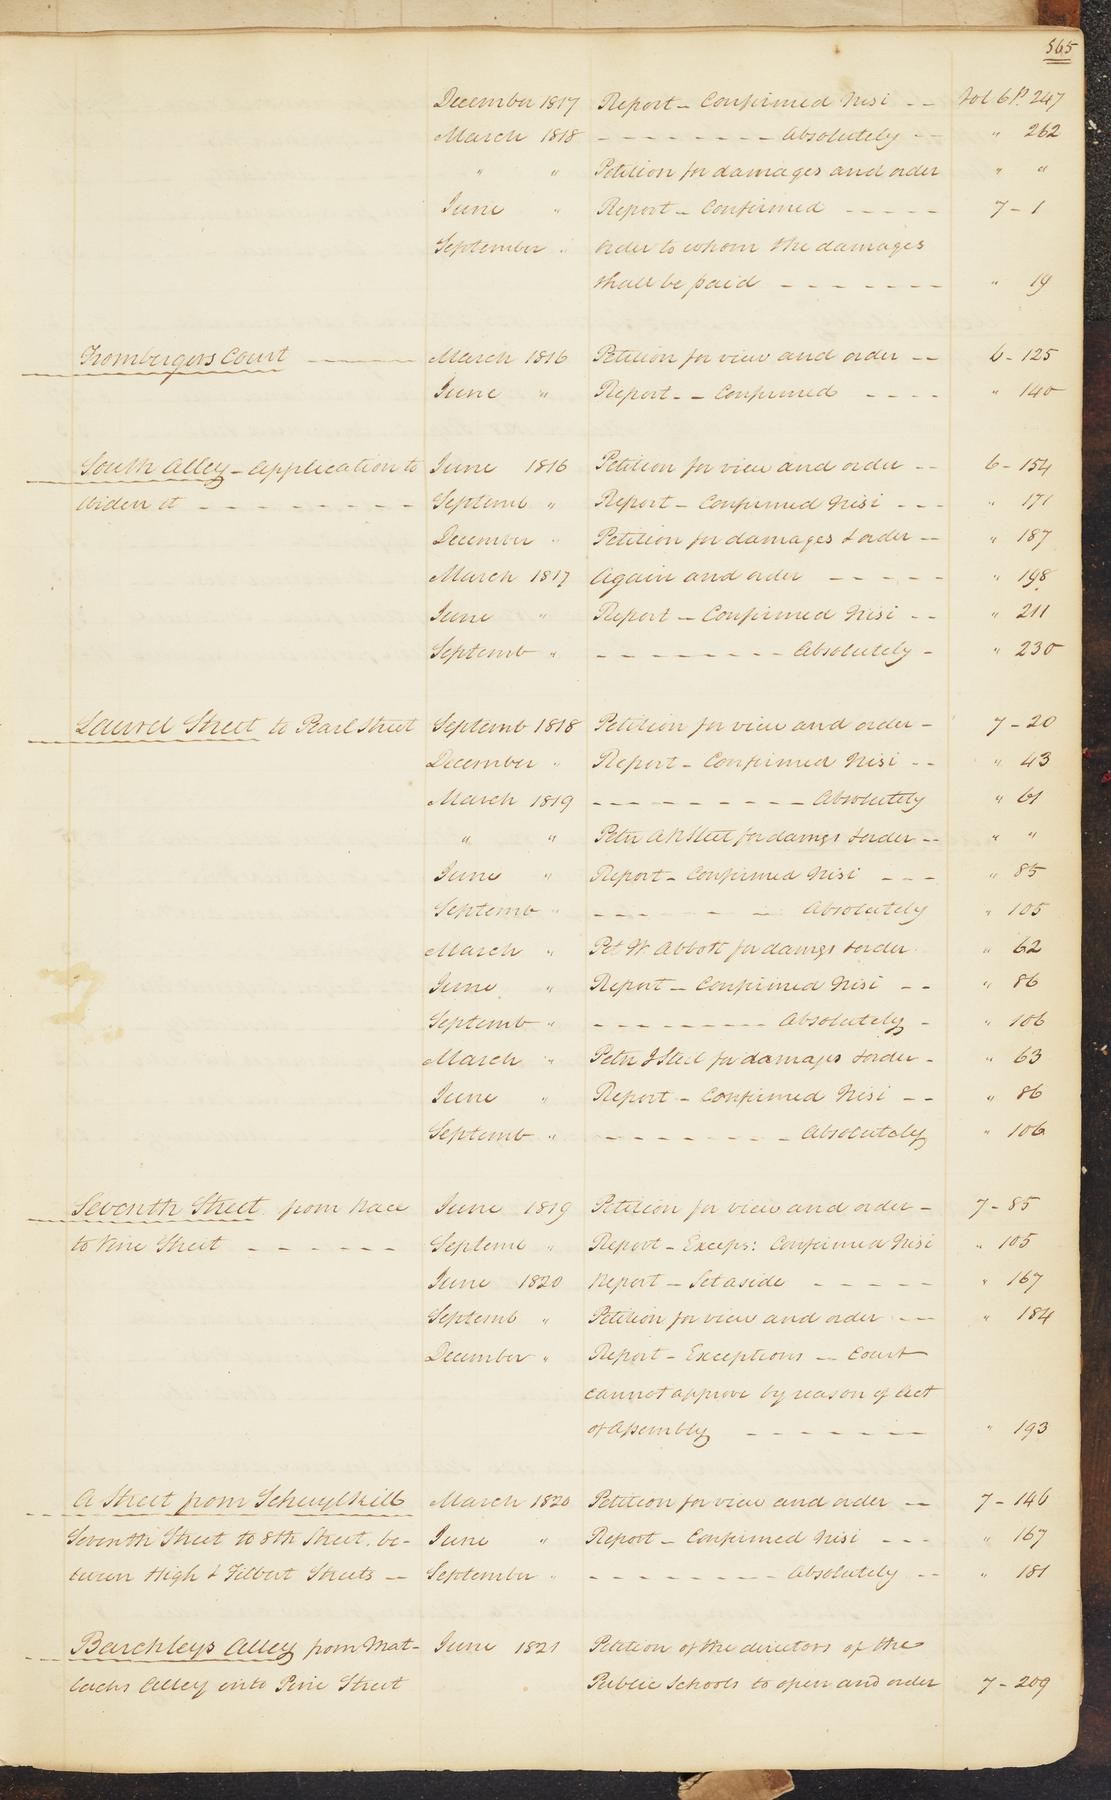 565
December 1817 Report - Confirmed Nisi - - Vol 6 P. 247
March 1818 - - - - - - - - Absolutely - - " 262
" " Petition for damages and order " "
June " Report - Confirmed - - - - - 7 - 1
September " Order to whom the damages
shall be paid - - - - - - - " 19
Trombergers Court - March 1816 Petition for view and order - - 6 - 125
June " Report - - Confirmed - - - - " 140
South Alley - Application to June 1816 Petition for view and order - - 6 - 154
widen it - - - - - - - - - Septemb " Report - Confirmed Nisi - - - " 171
December " Petition for damages & order - - " 187
March 1817 Again and order - - - - - " 198
June " Report - Confirmed Nisi - - " 211
Septemb " - - - - - - - - Absolutely - " 230
Laurel Street to Pearl Street Septemb 1818 Petition for view and order - 7 - 20
December " Report - Confirmed Nisi - - " 43
March 1819 - - - - - - - - - Absolutely " 61
" " Petn Steel for damgs & order - - " "
June " Report - Confirmed Nisi - - - " 85
Septemb " - - - - - Absolutely " 105
March " Pet W. Abbott for damgs & order " 62
June " Report - Confirmed Nisi - - " 86
Septemb " - - - - - - - - - Absolutely - " 106
March " Petn J Steel for damages & order - " 63
June " Report - Confirmed Nisi - - " 86
Septemb " - - - - - - - - Absolutely " 106
Seventh Street from Race June 1819 Petition for view and order - 7 - 85
to Vine Street - - - - - - Septemb " Report - Exceps: Confirmed Nisi " 105
June 1820 Report - Set aside - - - - - " 167
Septemb " Petition for view and order - - " 184
December " Report - Exceptions - Court
cannot approve by reason of Act
of Assembly - - - - - - - " 193
A Street from Schuylkill March 1820 Petition for view and order - - 7 - 146
Seventh Street to 8th Street, be- June " Report - Confirmed Nisi - - - " 167
tween High & Filbert Streets - September " - - - - - - - - Absolutely - - " 181
Barckleys Alley from Mat- June 1821 Petition of the directors of the
lacks Alley into Pine Street Public Schools to open and order 7 - 209